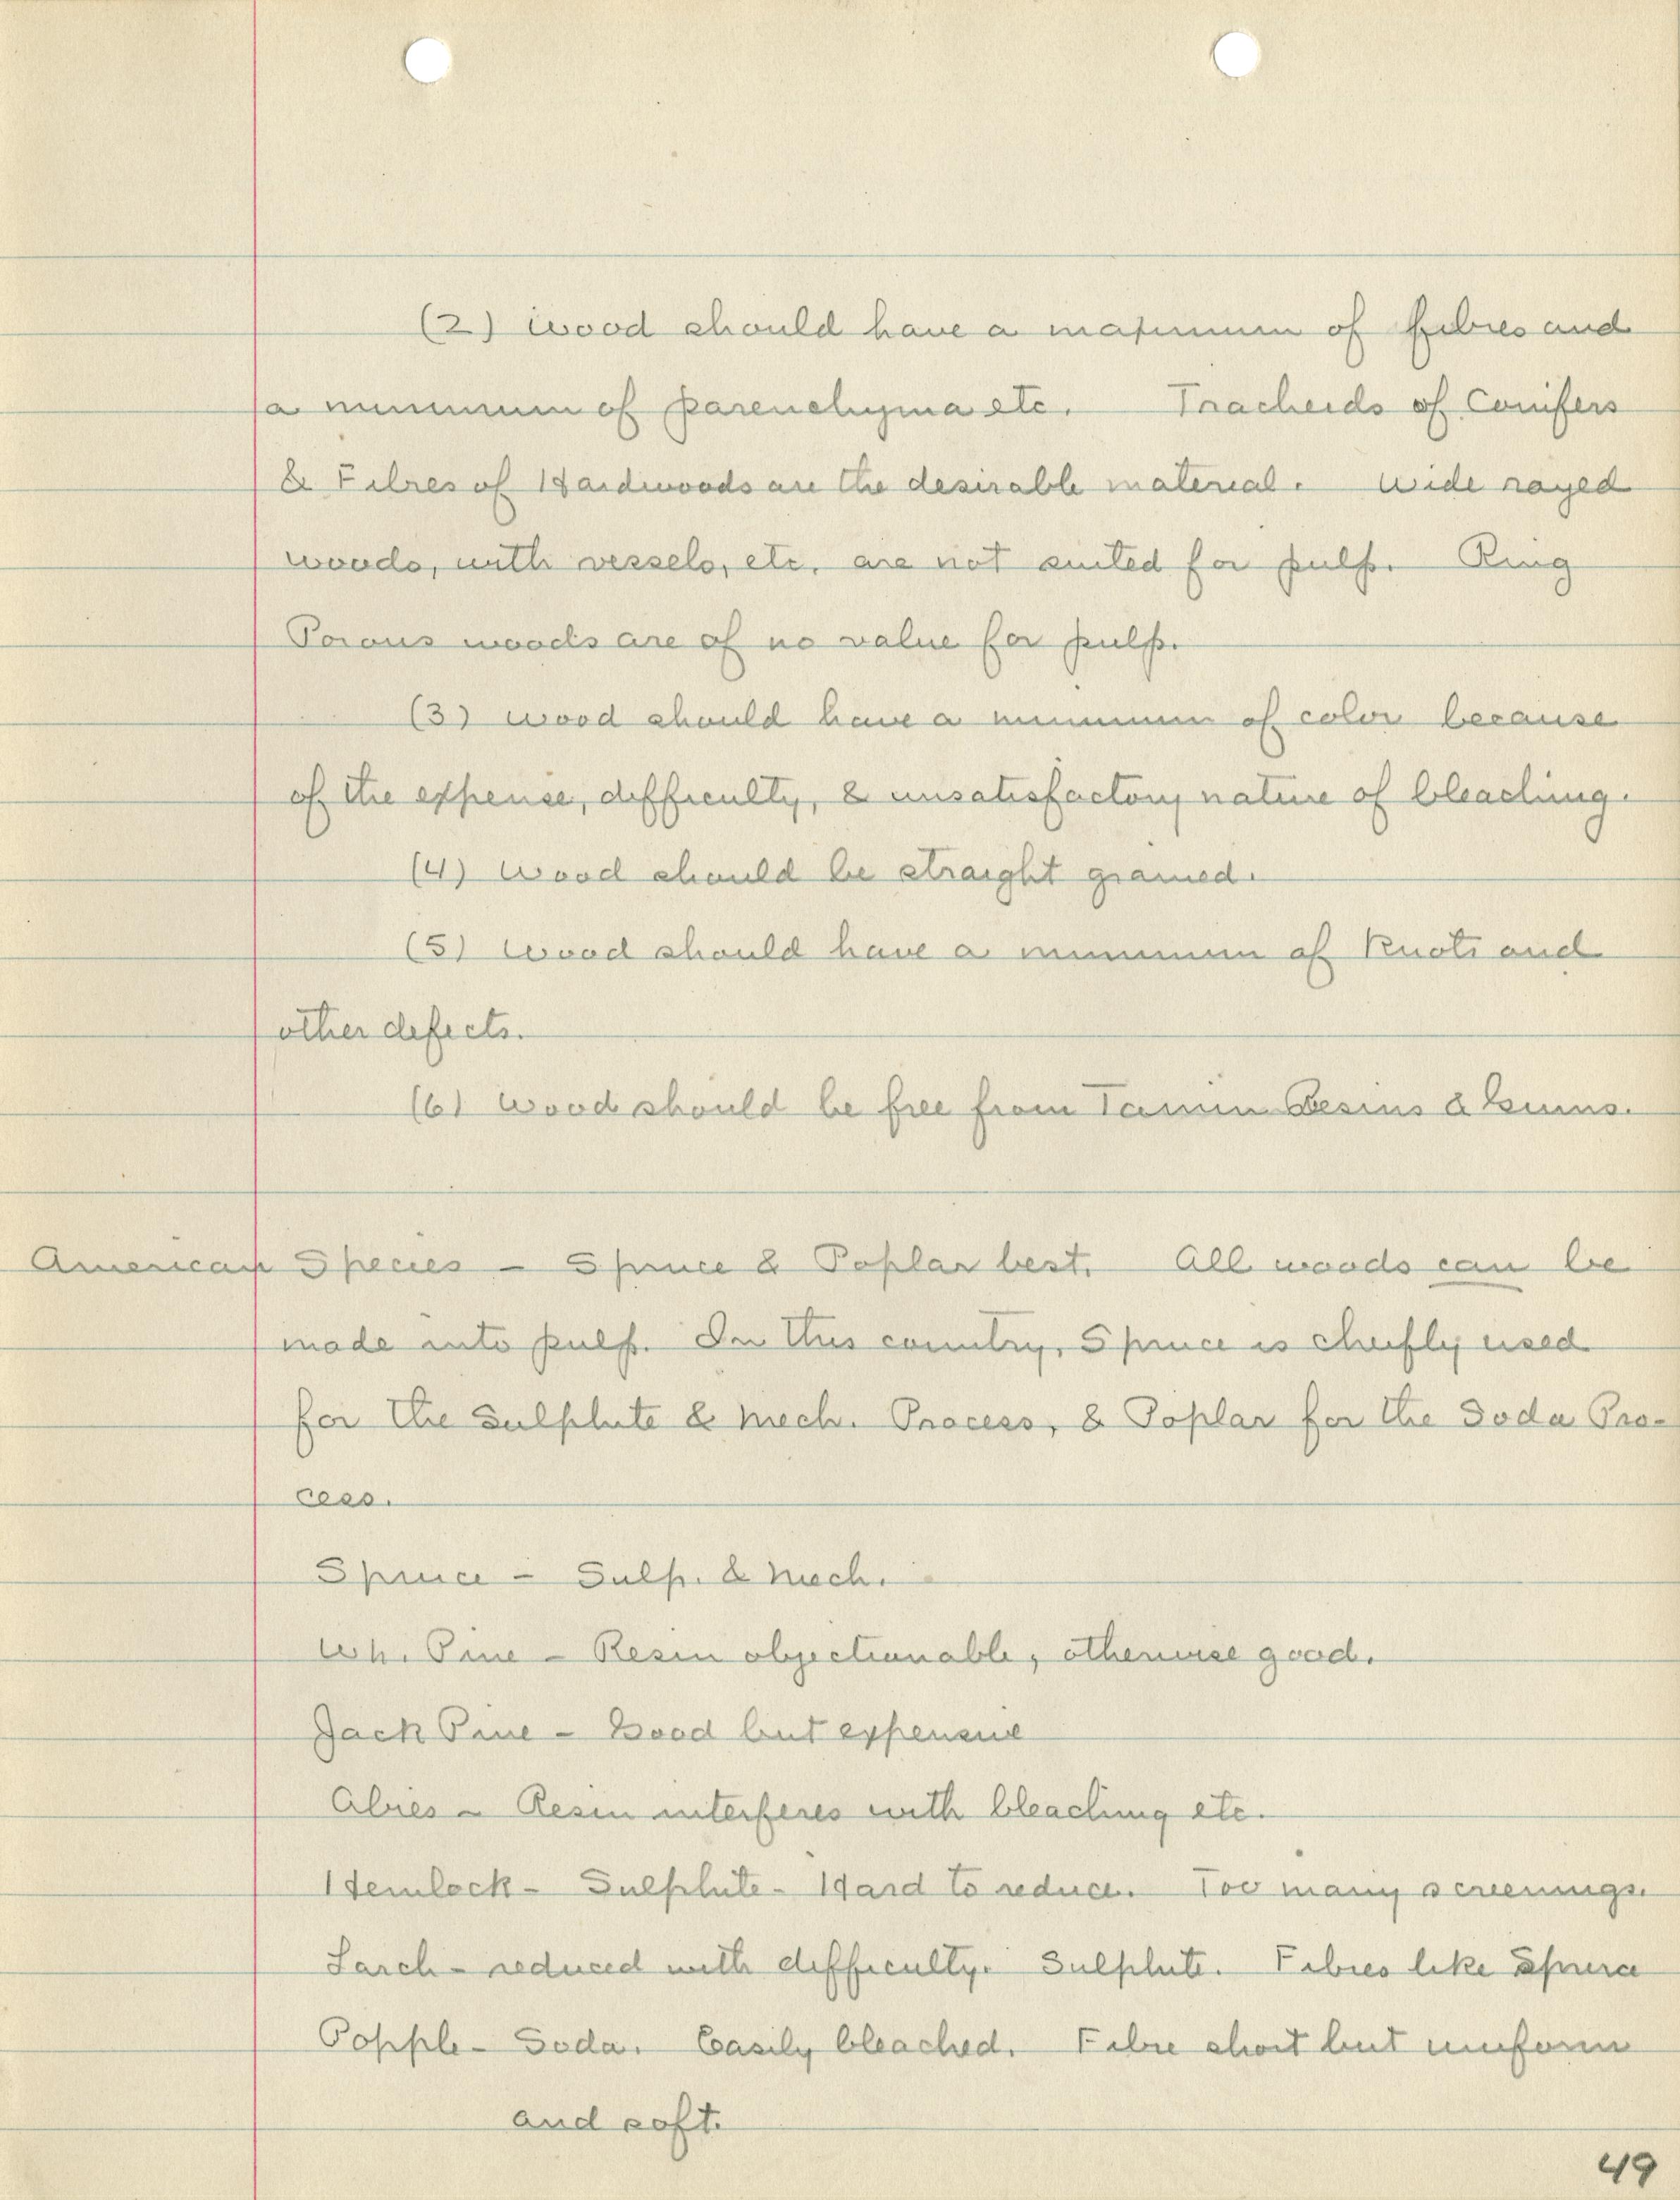 (2) Wood should have a maximum of fibres and
a minimum of parenchyma etc. Tracheids of Conifers
& Fibres of Hardwoods are the desirable material. Wide rayed
woods, with vessels, etc. are not suited for pulp. Ring
Porous woods are of no value for pulp.
(3) Wood should have a minimum of color because
of the expense, difficulty, & unsatisfactory nature of bleaching.
(4) Wood should be straight grained.
(5) Wood should have a minimum of Knots and
other defects.
(6) Wood should be free from Tannin Resins & Gums.
American Species - Spruce & Poplar best. All woods can be
made into pulp. In this country, Spruce is chiefly used
for the Sulphite & Mech. Process, & Poplar for the Soda Pro-
cess.
Spruce - Sulp. & Mech.
Wh. Pine - Resin objectionable, otherwise good.
Jack Pine - Good but expensive
Abies - Resin interferes with bleaching etc.
Hemlock - Sulphite - Hard to reduce. Too many screenings.
Larch - reduced with difficulty. Sulphite. Fibres like Spruce
Popple - Soda. Easily bleached. Fibre short but uniform
and soft.
49